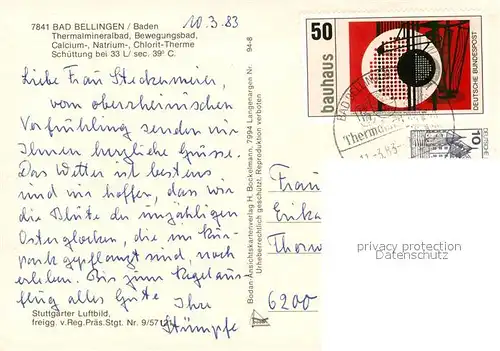 7841 BAD BELLINGEN / Baden
Thermalmineralbad, Bewegungsbad,
Calcium-, Natrium-, Chlorit-Therme
Schüttung bei 33 L/ sec. 39° C.
10.3.83
94-8
Liebe Frau
vom oberrheinischen
Vorfrühling senden wir
Ihnen herzliche Grüsse.
Das Wetter ist bestens
und wir hoffen, dass wir
die Blüte der unzähligen
Osterglocken, die im Kur-
park gepflanzt sind, noch
erleben. Bis zum Kegelaus-
flug alles Gute Ihre
Stümpfe
Stuttgarter Luftbild,
freigg. v.Reg.Präs.Stgt. Nr. 9/571
Bodan-Ansichtskartenverlag H. Bockelmann, 7994 Langenargen Nr.
Urheberrechtlich geschützt, Reproduktion verboten
50
bauhaus
DEUTSCHE BUNDESPOST
BAD BELLINGEN
Therma
11.-3.83
10
Frau
Erika
6200
privacy protection
Datenschutz